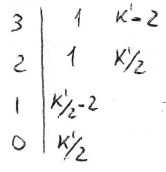 3 | 1 K'-2
2 | 1 K'/2
1 | K'/2-2
0 | K'/2